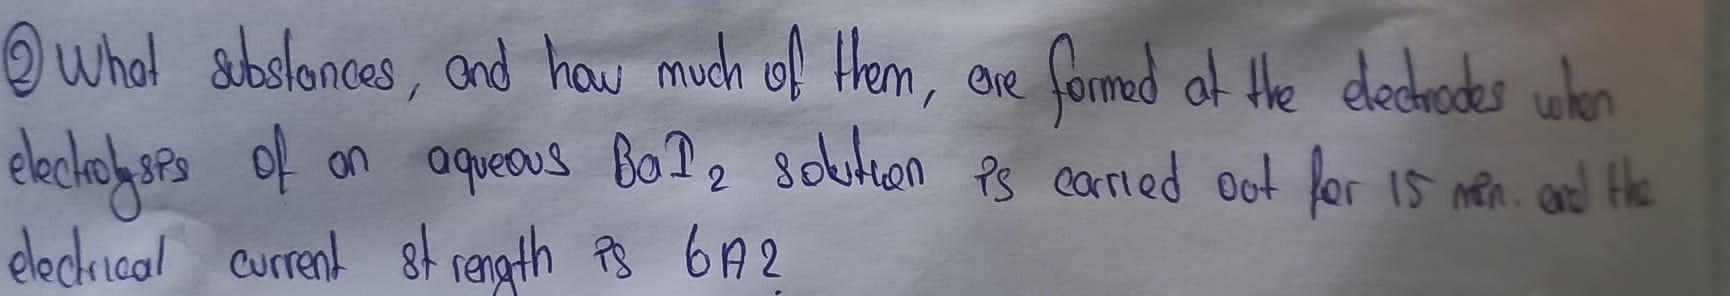 ② What substances, and how much of them, are formed at the electrodes when
electrolysis of an aqueous BaI2 solution is carried out for 15 min. and the
electrical current strength is 6A?